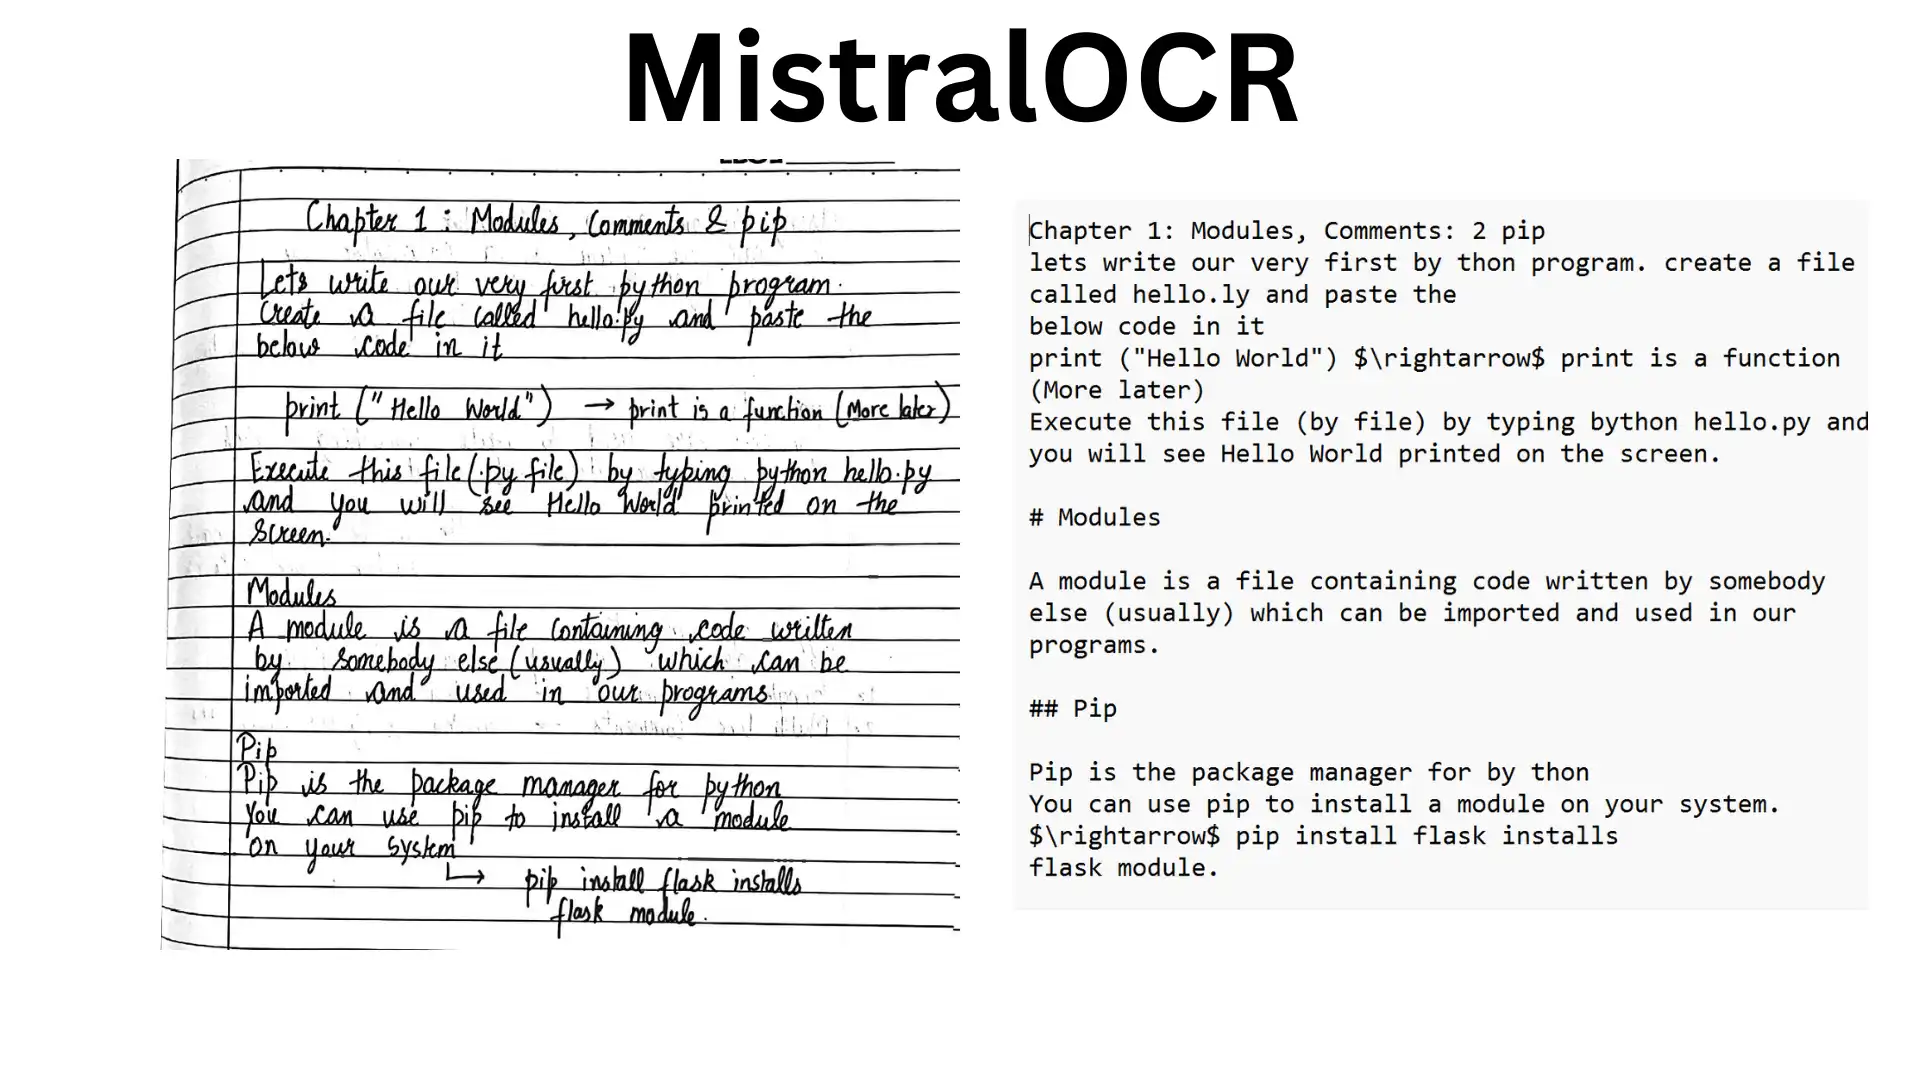 MistralOCR
Chapter 1 : Modules, Comments & pip
Lets write our very first python program.
Create a file called hello.py and paste the
below code in it
print ("Hello World") → print is a function (More later)
Execute this file (.py file) by typing python hello.py
and you will see Hello World printed on the
screen.
Modules
A module is a file containing code written
by somebody else (usually) which can be
imported and used in our programs
Pip
Pip is the package manager for python
You can use pip to install a module
on your system
↳ pip install flask installs
flask module.
Chapter 1: Modules, Comments: 2 pip
lets write our very first by thon program. create a file
called hello.ly and paste the
below code in it
print ("Hello World") $\rightarrow$ print is a function
(More later)
Execute this file (by file) by typing bython hello.py and
you will see Hello World printed on the screen.
# Modules
A module is a file containing code written by somebody
else (usually) which can be imported and used in our
programs.
## Pip
Pip is the package manager for by thon
You can use pip to install a module on your system.
$\rightarrow$ pip install flask installs
flask module.